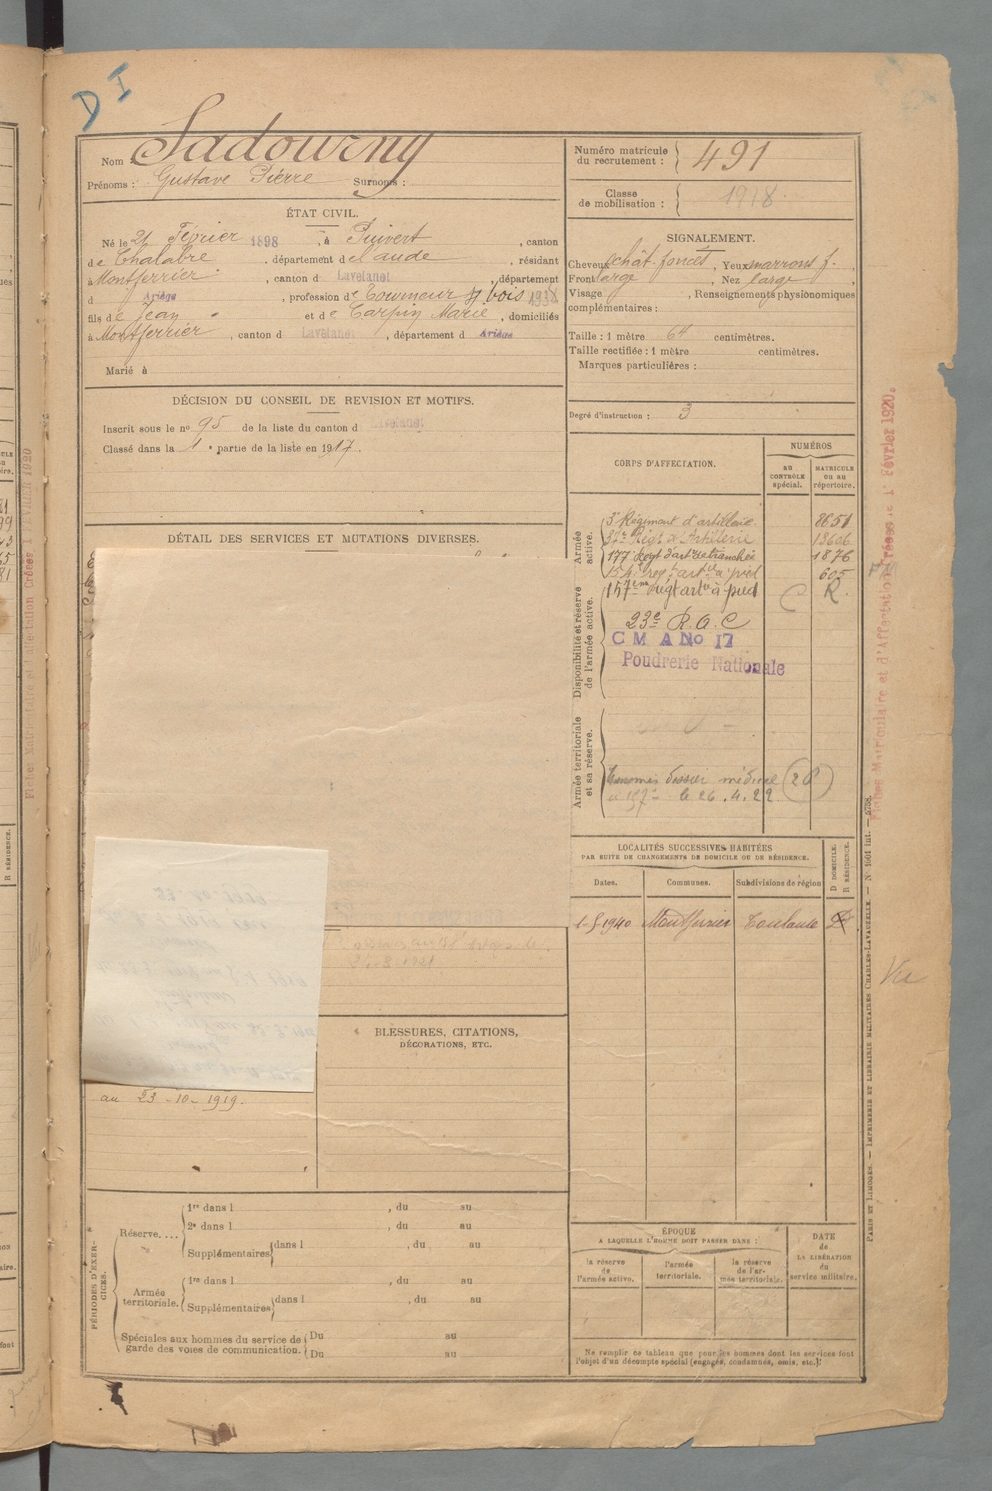 D I
Nom : Sadourny
Prénoms : Gustave Pierre Surnoms :
Numéro matricule du recrutement : 491
Classe de mobilisation : 1918
ÉTAT CIVIL.
Né le 21 Février 1898, à Puivert, canton
de Chalabre, département de l'aude, résidant
à Montferrier, canton d Lavelanet, département
d Ariège, profession de Tourneur s/ bois 1938
fils de Jean et de Tarpin Marie, domiciliés
à Montferrier, canton d Lavelanet, département d Ariège
Marié à
SIGNALEMENT.
Cheveux chât. foncés, Yeux marrons f.
Front large, Nez large
Visage , Renseignements physionomiques
complémentaires :
Taille : 1 mètre 64 centimètres.
Taille rectifiée : 1 mètre centimètres.
Marques particulières :
Degré d'instruction : 3
DÉCISION DU CONSEIL DE REVISION ET MOTIFS.
Inscrit sous le no 95 de la liste du canton d Lavelanet
Classé dans la 1e partie de la liste en 1917.
DÉTAIL DES SERVICES ET MUTATIONS DIVERSES.
CORPS D'AFFECTATION.
NUMÉROS
AU CONTRÔLE spécial.
MATRICULE ou au répertoire.
Armée active.
3e Régiment d'artillerie 8651
37e Régt d'Artillerie 13606
177e Regt d'art de tranchée 1876
154e reg. art à pied 605
Disponibilité et réserve de l'armée active.
157eme regt artie à pied C R.
23e R.A.C
C M A No 17
Poudrerie Nationale
Armée territoriale et sa réserve.
dossier médical
le 26.4.22
LOCALITÉS SUCCESSIVES HABITÉES
PAR SUITE DE CHANGEMENTS DE DOMICILE OU DE RÉSIDENCE.
Dates. Communes. Subdivisions de région D DOMICILE. R RÉSIDENCE.
1-5-1940 Montferrier Toulouse
BLESSURES, CITATIONS,
DÉCORATIONS, ETC.
au 23-10-1919.
PÉRIODES D'EXERCICES.
Réserve....
1re dans l , du au
2e dans l , du au
Supplémentaires dans l , du au
Armée territoriale.
1re dans l , du au
Supplémentaires dans l , du au
Spéciales aux hommes du service de garde des voies de communication.
Du au
Du au
ÉPOQUE
A LAQUELLE L'HOMME DOIT PASSER DANS :
la réserve de l'armée active.
l'armée territoriale.
la réserve de l'armée territoriale.
DATE de LA LIBÉRATION du service militaire.
Ne remplir ce tableau que pour les hommes dont les services font
l'objet d'un décompte spécial (engagés, condamnés, omis, etc.).
PARIS ET LIMOGES. — IMPRIMERIE ET LIBRAIRIE MILITAIRES CHARLES-LAVAUZELLE.
Vu